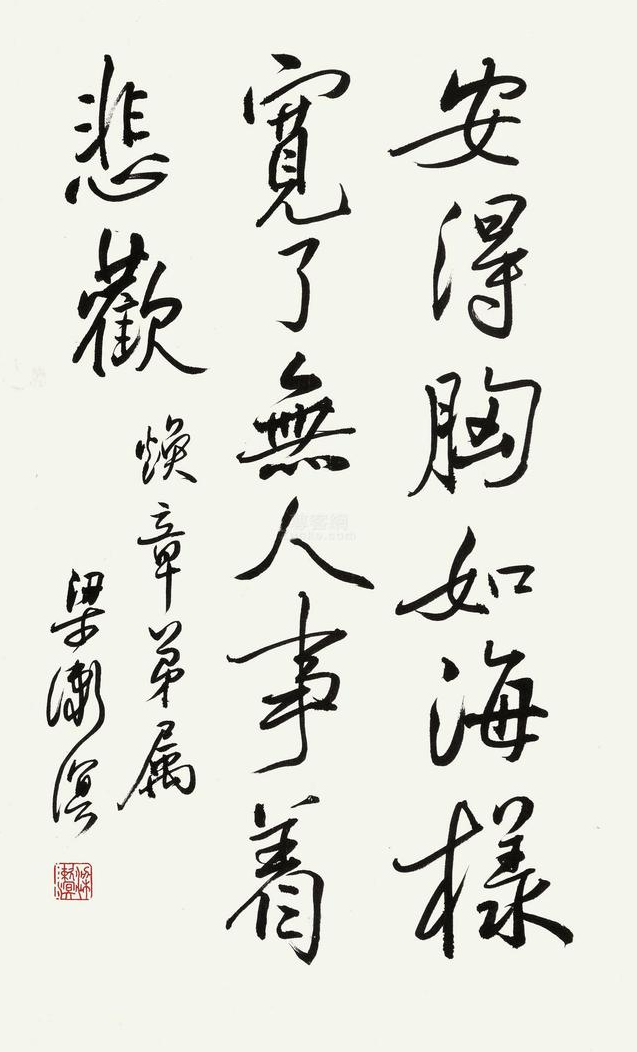 安得胸如海樣
寬了無人事着
悲歡
煥章弟属
梁漱溟
梁漱溟